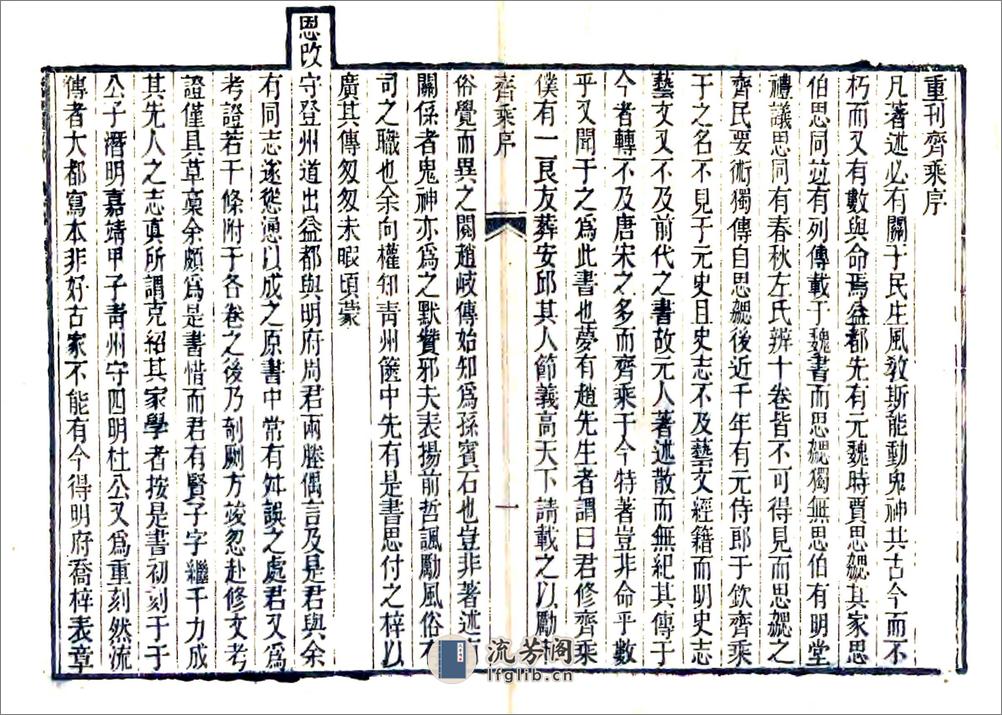 重刊齊乘序
凡著述必有關于民生風敎斯能動鬼神共古今而不
朽而又有數與命焉益都先有元魏時賈思勰其家思
伯思同並有列傳載于魏書而思勰獨無思伯有明堂
禮議思同有春秋左氏辨十卷皆不可得見而思勰之
齊民要術獨傳自思勰後近千年有元侍郎于欽齊乘
于之名不見于元史且史志不及藝文經籍而明史志
藝文又不及前代之書故元人著述散而無紀其傳于
今者轉不及唐宋之多而齊乘于今特著豈非命乎數
乎又聞于之爲此書也夢有趙先生者謂曰君修齊乘
僕有一良友葬安邱其人節義高天下請載之以勵
齊乘序
一
俗覺而異之閱趙岐傳始知爲孫賓石也豈非著述
關係者鬼神亦爲之默贊邪夫表揚前哲諷勵風俗
司之職也余向權知靑州篋中先有是書思付之梓以
廣其傳匆匆未暇頃蒙
恩改守登州道出益都與明府周君兩塍偶言及是君與余
有同志遂慫慂以成之原書中常有舛誤之處君又爲
考證若干條附于各卷之後乃剞劂方竣忽赴修文考
證僅具草稾余頗爲是書惜而君有賢子字繼千力成
其先人之志眞所謂克紹其家學者按是書初刻于于
公子潛明嘉靖甲子靑州守四明杜公又爲重刻然流
傳者大都寫本非好古家不能有今得明府喬梓表章
流芳阁
lfglib.cn